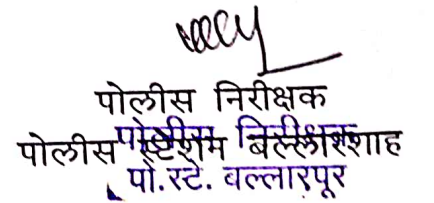 पोलीस निरीक्षक
पोलीस स्टेशन बल्लारशाह
पोलीस निरीक्षक
पो.स्टे. बल्लारपूर